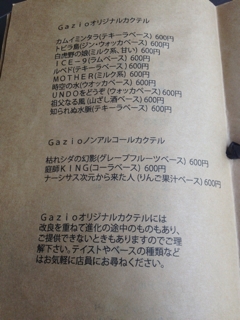 Gazioオリジナルカクテル
カムイミンタラ(テキーラベース) 600円
トビラ島(ジン・ウォッカベース) 600円
白虎野の娘(ミルク系、甘い) 600円
ICE-9(ラムベース) 600円
ルベド(テキーラベース) 600円
MOTHER(ミルク系) 600円
時空の水(ウオッカベース) 600円
UNDOをどうぞ(ウォッカベース) 600円
祖父なる風(山ざし酒ベース) 600円
知られぬ水脈(テキーラベース) 600円
Gazioノンアルコールカクテル
枯れシダの幻影(グレープフルーツベース) 600円
庭師KING(コーラベース) 600円
ナーシサス次元から来た人(りんご果汁ベース) 600円
Gazioオリジナルカクテルには
改良を重ねて進化の途中のものもあり、
ご提供できないときもありますのでご理
解下さい。テイストやベースの種類など
はお気軽に店員にお尋ねください。